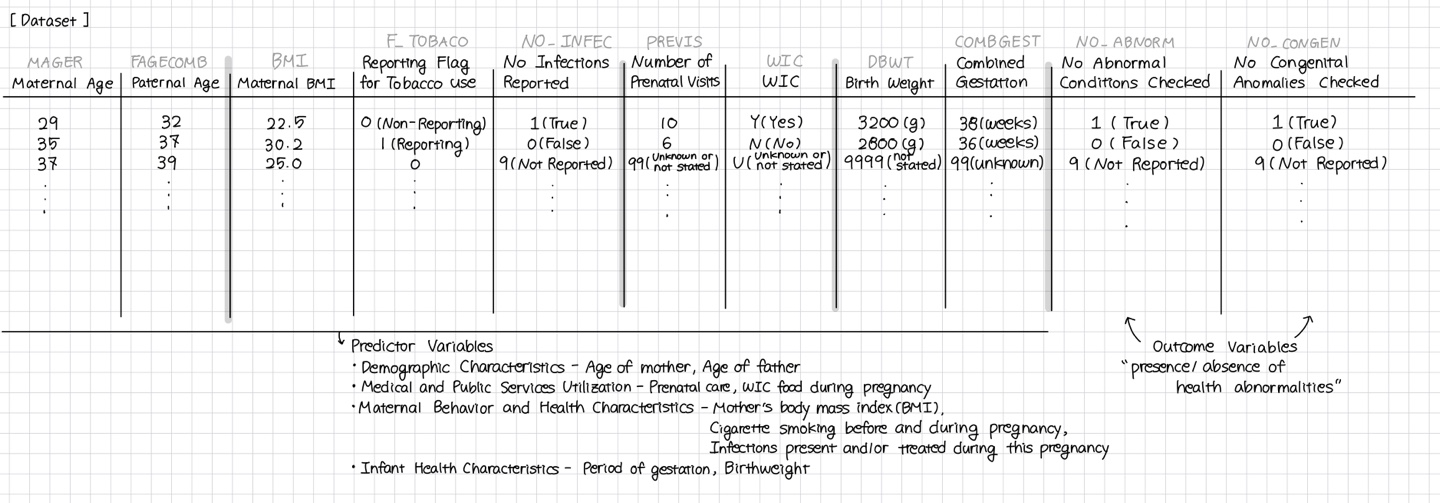 [ Dataset ]
MAGER FAGECOMB BMI F_TOBACO NO_INFEC PREVIS WIC DBWT COMBGEST NO_ABNORM NO_CONGEN
Maternal Age Paternal Age Maternal BMI Reporting Flag for Tobacco use No Infections Reported Number of Prenatal Visits WIC Birth Weight Combined Gestation No Abnormal Conditions Checked No Congenital Anomalies Checked
29 32 22.5 0 (Non-Reporting) 1 (True) 10 Y(Yes) 3200 (g) 38(weeks) 1 (True) 1 (True)
35 37 30.2 1 (Reporting) 0(False) 6 N(No) 2800 (g) 36(weeks) 0 (False) 0(False)
37 39 25.0 0 9(Not Reported) 99(Unknown or not stated) U(Unknown or not stated) 9999(not stated) 99(unknown) 9 (Not Reported) 9 (Not Reported)
Predictor Variables
• Demographic Characteristics - Age of mother, Age of father
• Medical and Public Services Utilization - Prenatal care, WIC food during pregnancy
• Maternal Behavior and Health Characteristics - Mother's body mass index(BMI),
Cigarette smoking before and during pregnancy,
Infections present and/or treated during this pregnancy
• Infant Health Characteristics - Period of gestation, Birthweight
Outcome Variables
"presence/absence of
health abnormalities"